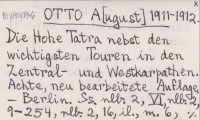 OTTO A[ugust] 1911-1912.
Die Hohe Tatra nebst den
wichtigsten Touren in den
Zentral- und Westkarpathen.
Achte, neu bearbeitete Auflage,
— Berlin. Ss. nlb. 2, VI, nlb. 2,
9-254, nlb. 2, 16, il., m. 6, %.